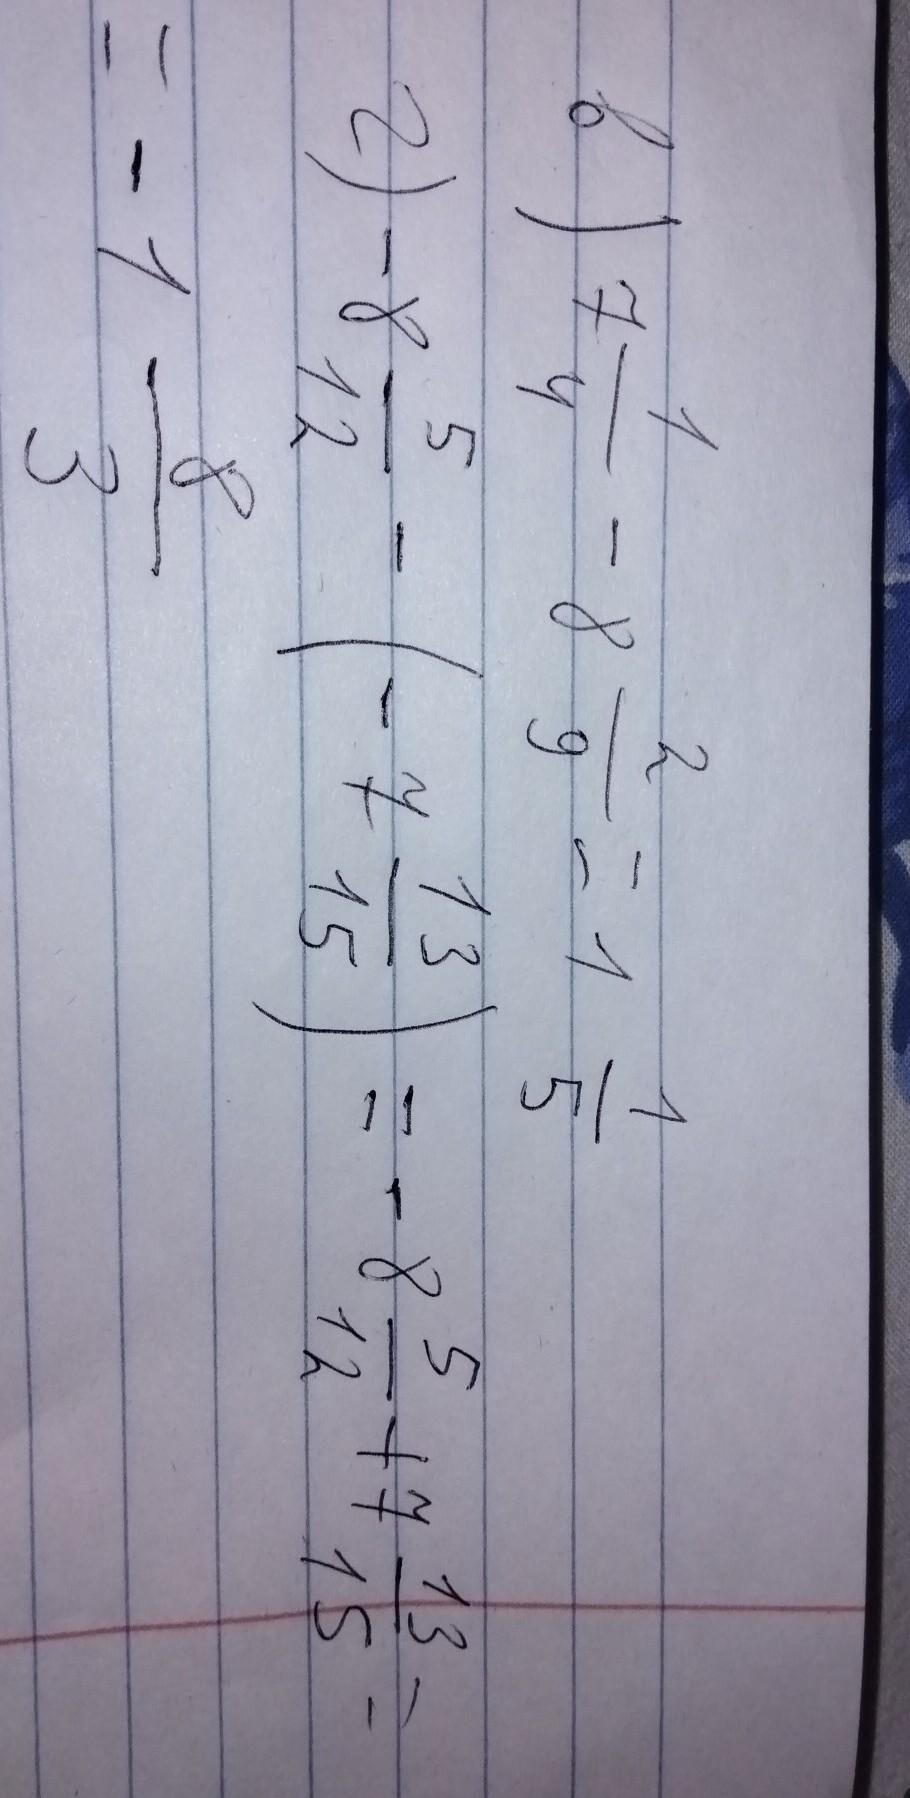 в) 7 1/4 - 8 2/9 = 1 1/5
г) - 8 5/12 - (- 7 13/15) = - 8 5/12 + 7 13/15 =
= - 1 8/3